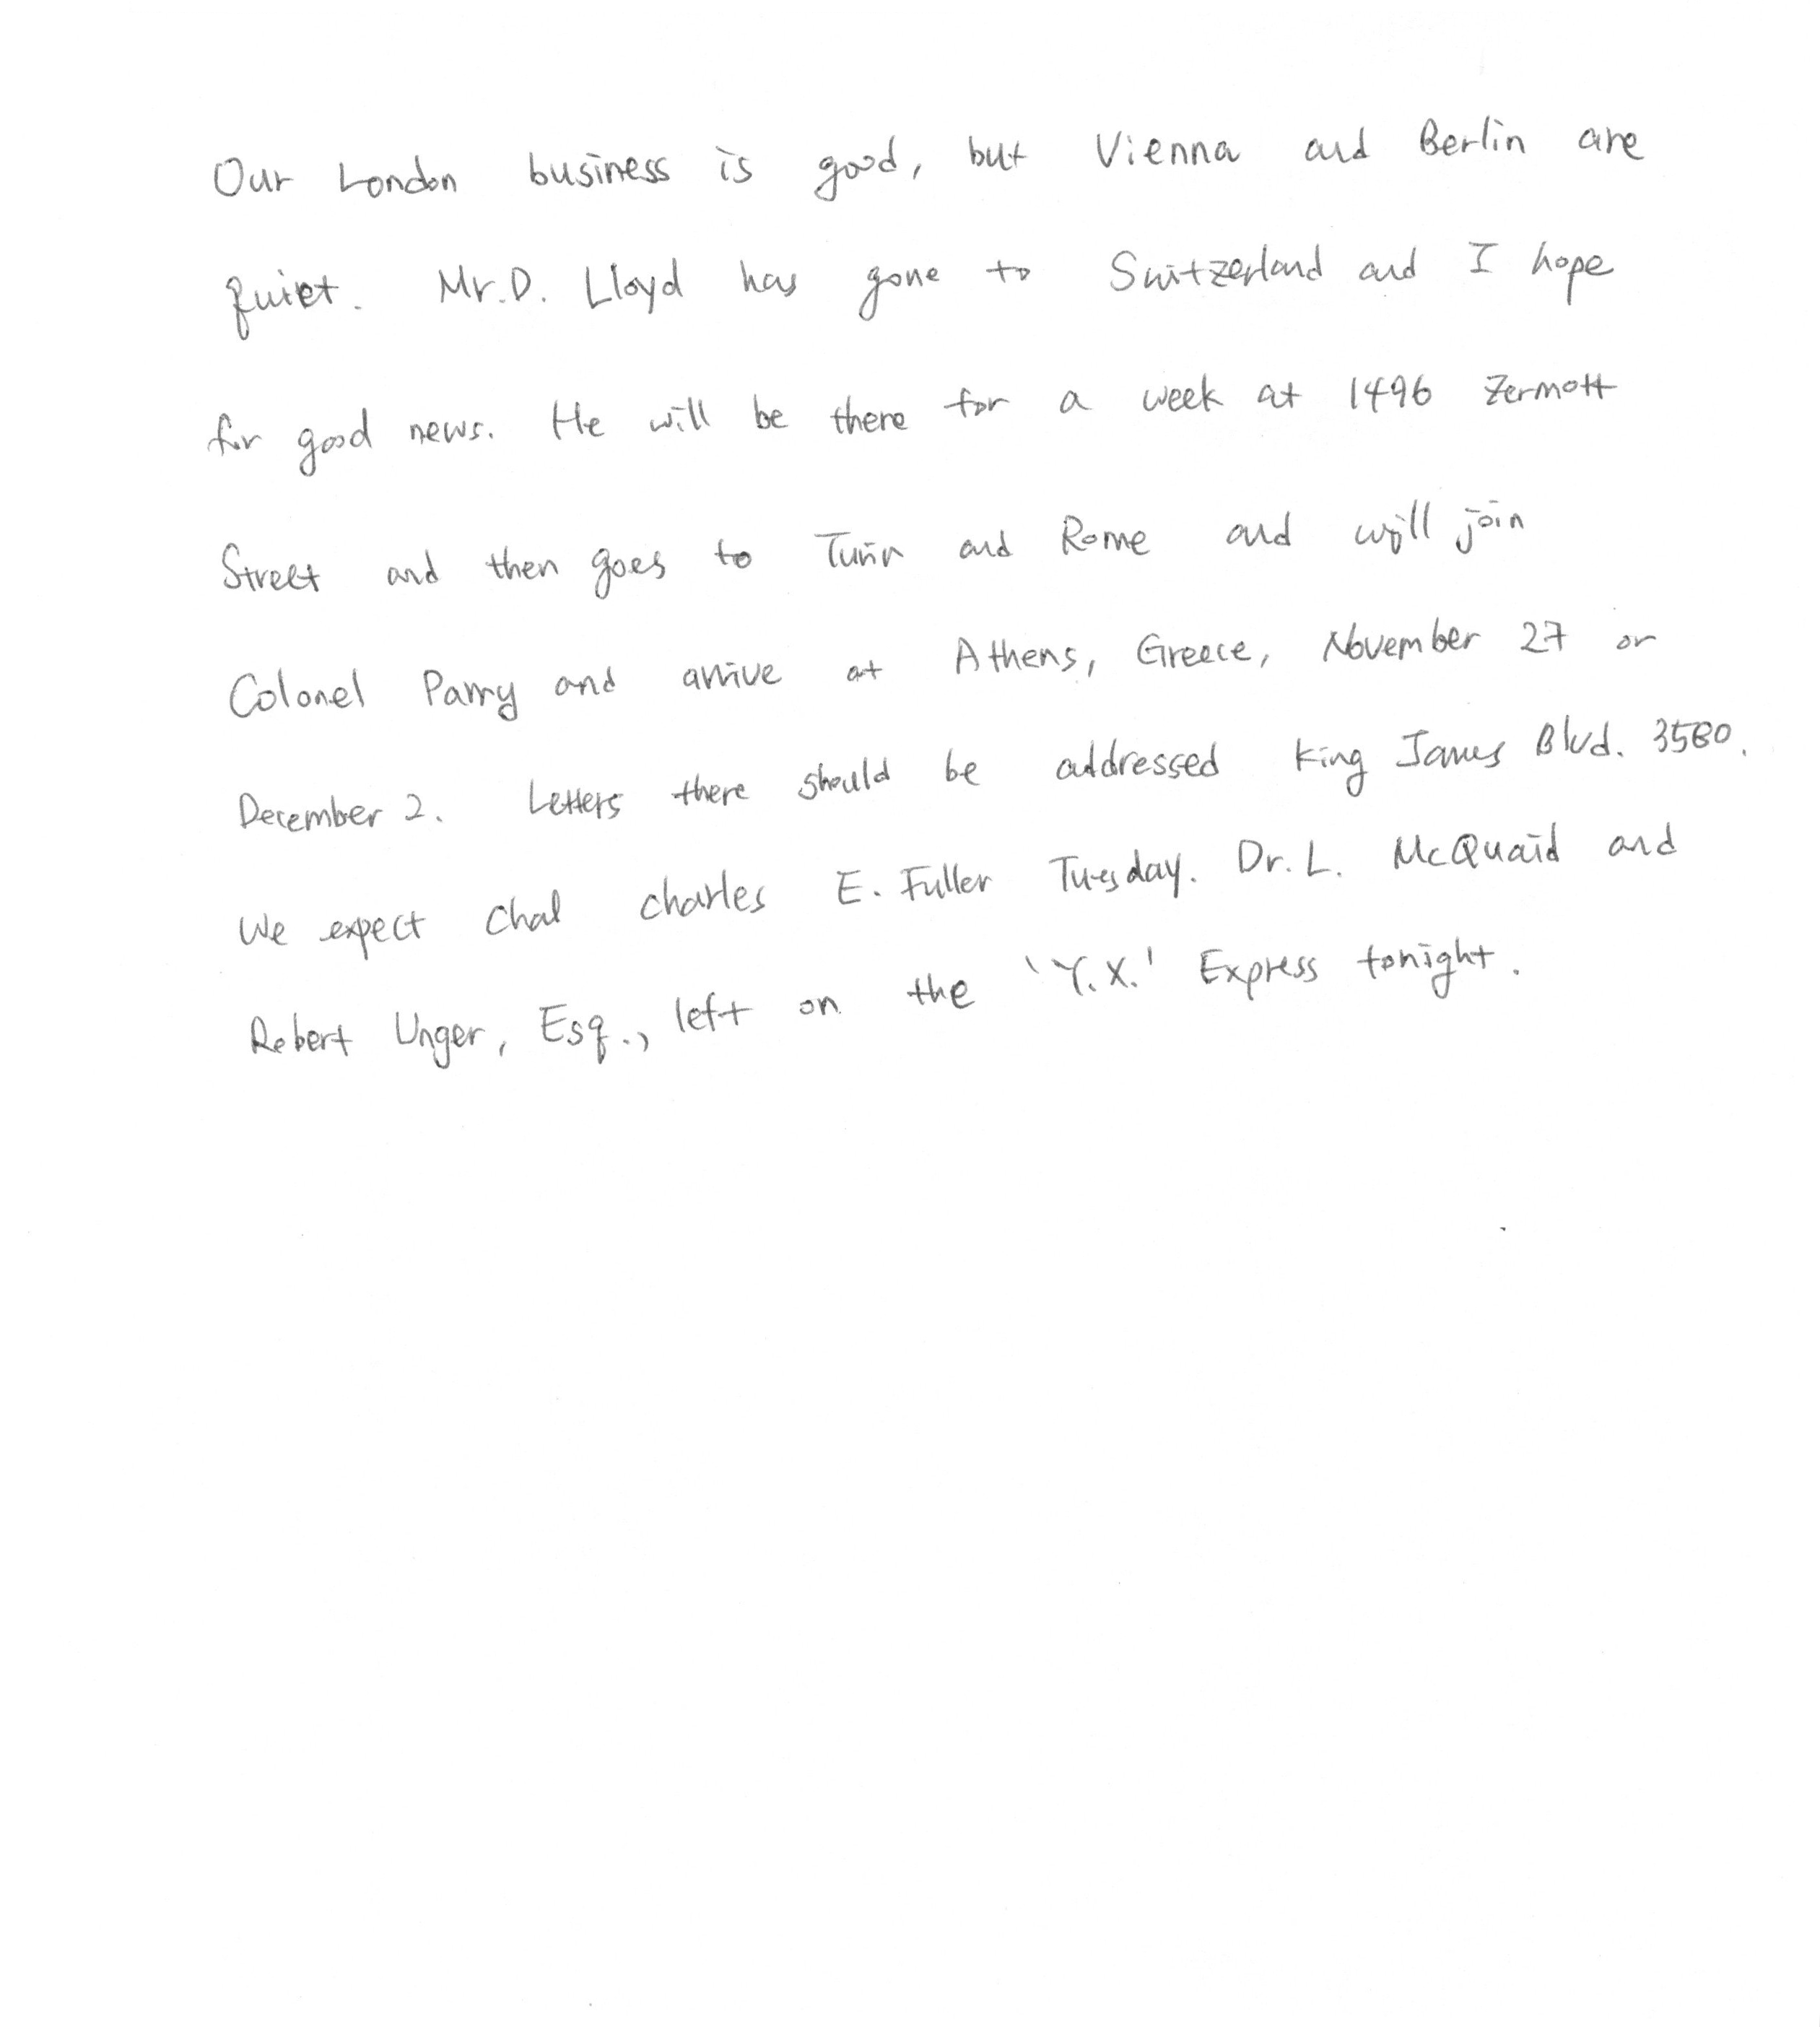 Our London business is good, but Vienna and Berlin are
quiet. Mr. D. Lloyd has gone to Switzerland and I hope
for good news. He will be there for a week at 1496 Zermott
Street and then goes to Turin and Rome and will join
Colonel Parry and arrive at Athens, Greece, November 27 or
December 2. Letters there should be addressed King James Blvd. 3580.
We expect Chal Charles E. Fuller Tuesday. Dr. L. McQuaid and
Robert Unger, Esq., left on the 'Y.X.' Express tonight.